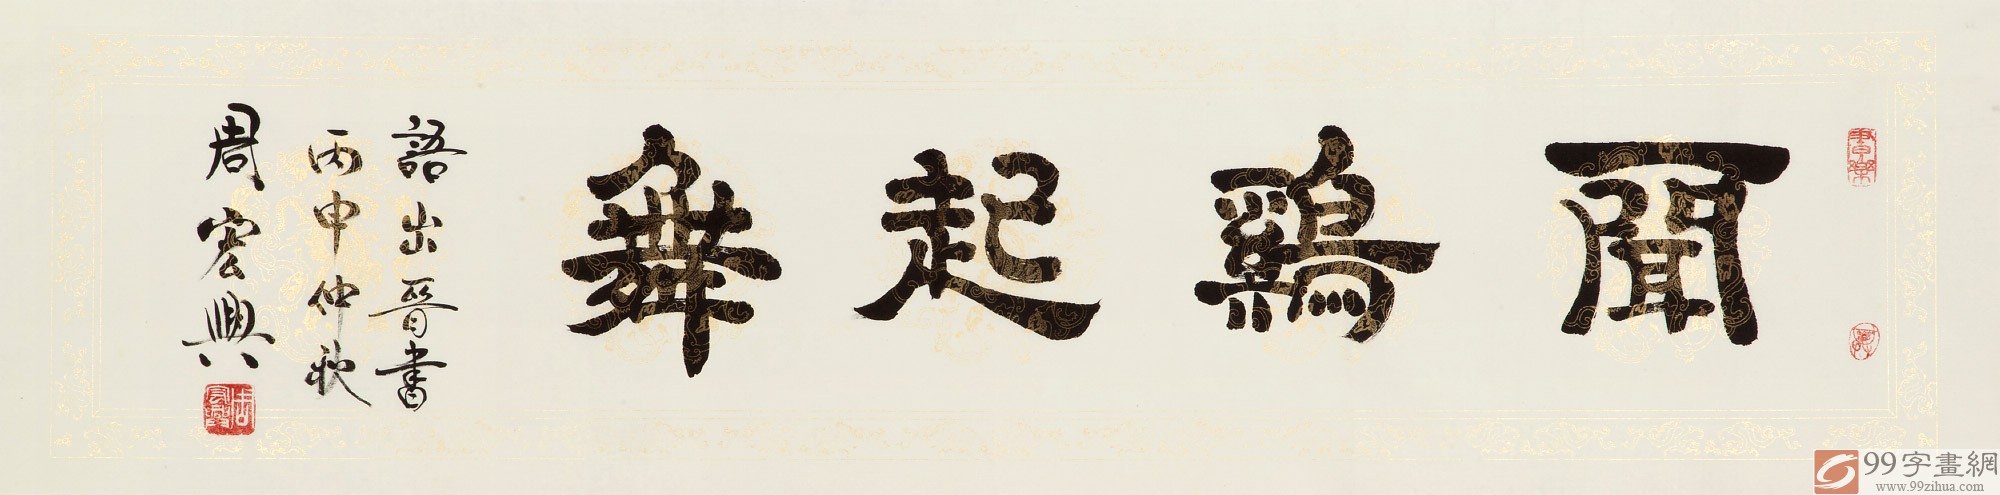 聞鷄起舞
語出晉書
丙申仲秋
周宏興
99字畫網
www.99zihua.com